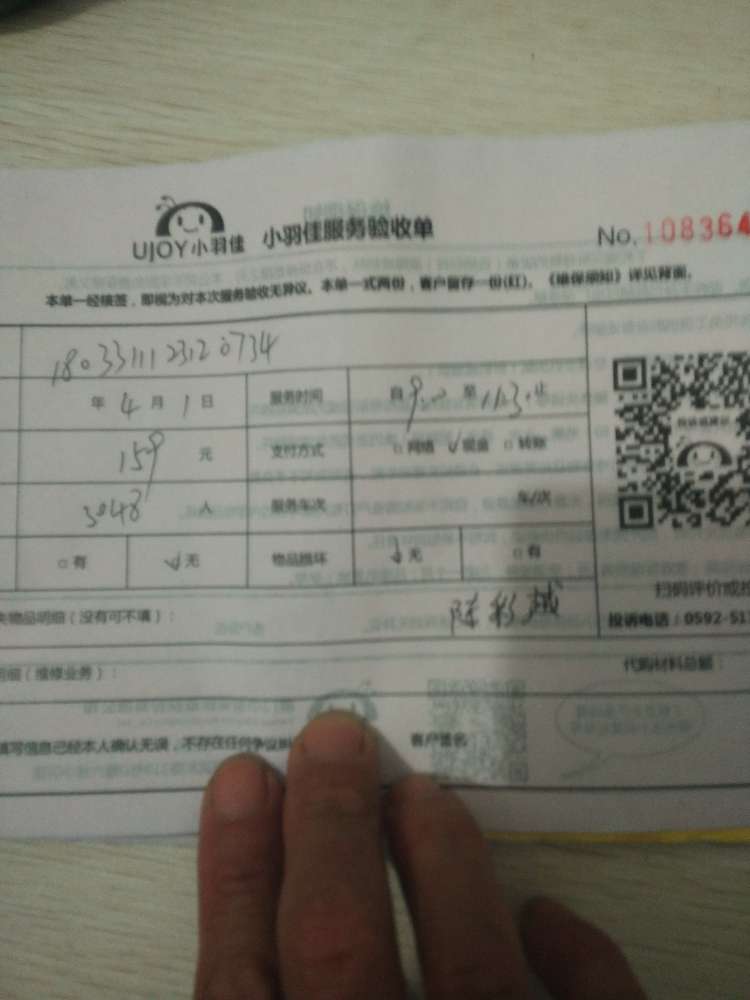 UJOY小羽佳 小羽佳服务验收单 No. 108364
本单一经核签，即视为对本次服务验收无异议。本单一式两份，客户留存一份(红)。《维保细则》详见背面。
180331112312 0734
年 4 月 1 日 服务时间 自 9:00 至
159 元 支付方式 □网络 √现金 □转账
3048 人 服务车次 车/次
□有 √无 物品损坏 √无 □有
物品明细（没有可不填）： 陈彩越
扫码评价或投
投诉电话：0592-51
细（维修业务）： 代购材料总额：
填写信息已经本人确认无误，不存在任何争议 客户签名